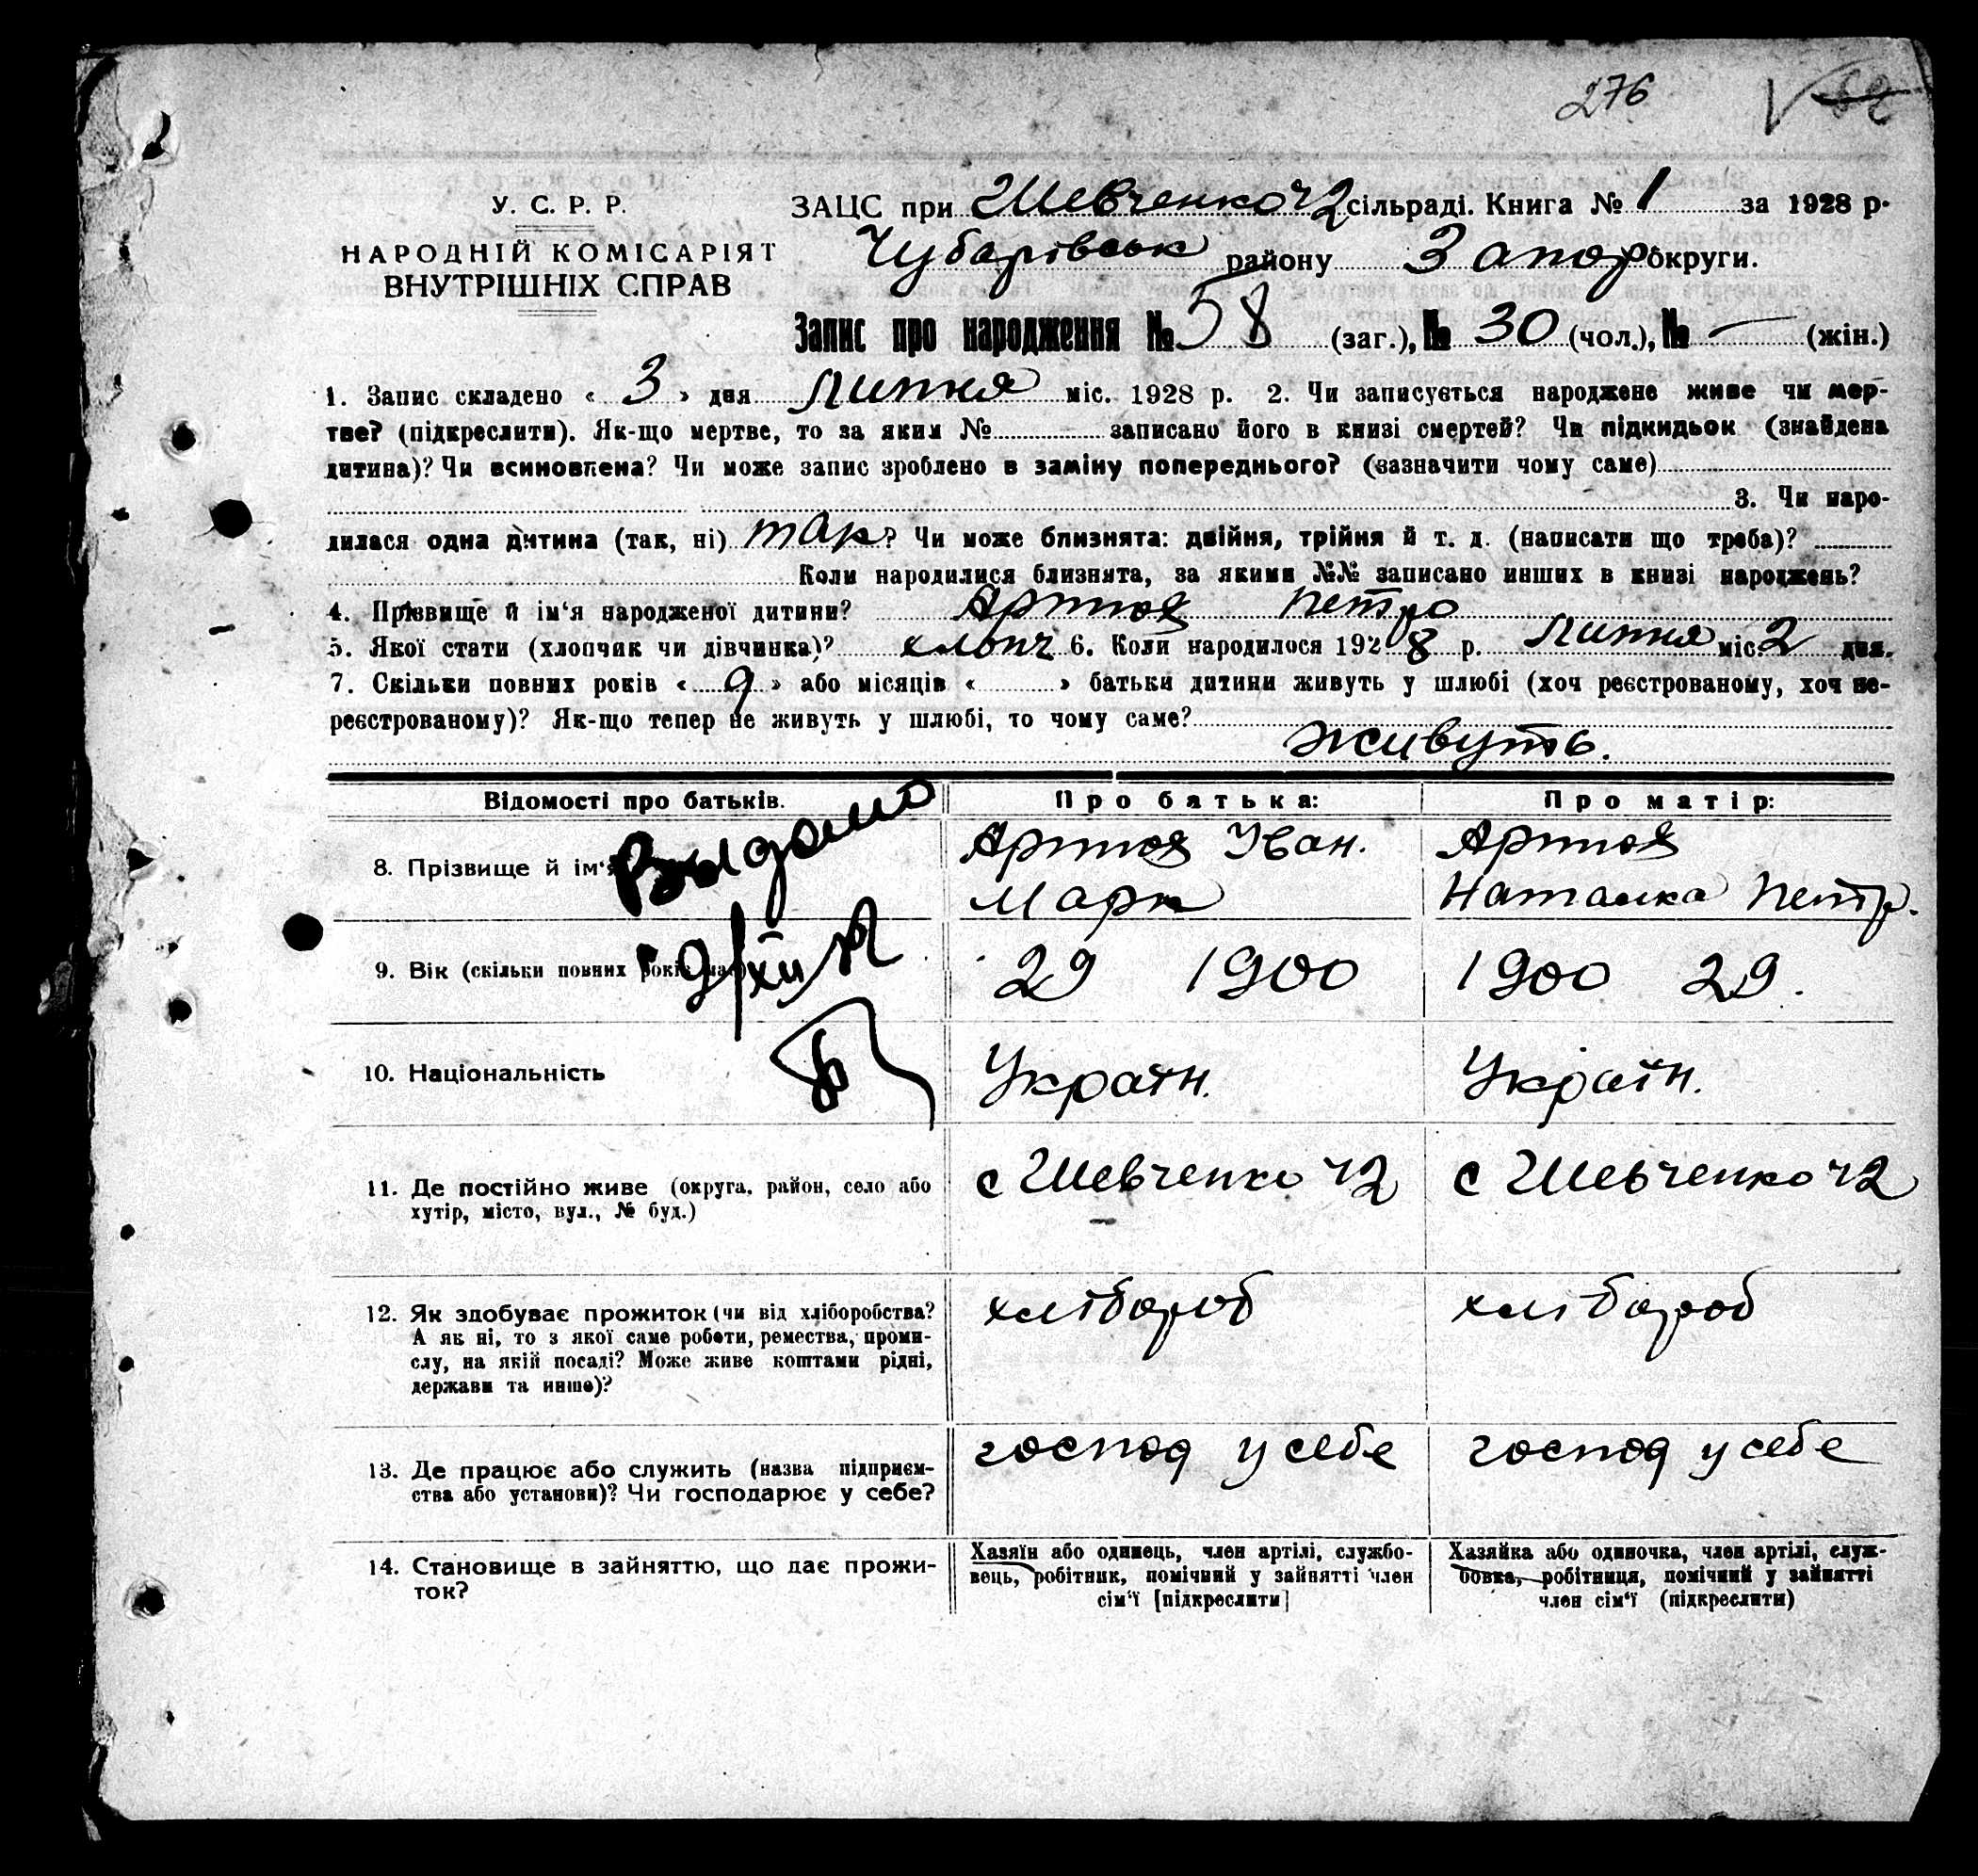 276
У. С. Р. Р.
НАРОДНІЙ КОМІСАРІЯТ
ВНУТРІШНІХ СПРАВ
ЗАЦС при Шевченко ч2 сільраді. Книга № 1 за 1928 р.
Чубарівськ району Запор округи.
Запис про народження № 58 (заг.), № 30 (чол.), № — (жін.)
1. Запис складено « 3 » дня Липня міс. 1928 р. 2. Чи записується народжене живе чи мер-
тве? (підкреслити). Як-що мертве, то за яким № записано його в книзі смертей? Чи підкидьок (знайдена
дитина)? Чи всиновлена? Чи може запис зроблено в заміну попереднього? (зазначити чому саме)
3. Чи наро-
дилася одна дитина (так, ні) так? Чи може близнята: двійня, трійня й т. д. (написати що треба)?
Коли народилися близнята, за якими №№ записано инших в книзі народжень?
4. Прізвище й ім'я народженої дитини? Артюх Петро
5. Якої стати (хлопчик чи дівчинка)? хлопч 6. Коли народилося 1928 р. Липня міс. 2 дня.
7. Скільки повних років « 9 » або місяців « » батьки дитини живуть у шлюбі (хоч реєстрованому, хоч не-
реєстрованому)? Як-що тепер не живуть у шлюбі, то чому саме?
живуть.
Відомості про батьків.
Про батька:
Про матір:
8. Прізвище й ім'я
Выдано
Артюх Іван.
Марк
Артюх
Наталка Петр.
9. Вік (скільки повних років має)
9/XII
29 1900
1900 29.
10. Національність
Україн.
Україн.
11. Де постійно живе (округа, район, село або
хутір, місто, вул., № буд.)
с Шевченко ч2
с Шевченко ч2
12. Як здобуває прожиток (чи від хліборобства?
А як ні, то з якої саме роботи, ремества, проми-
слу, на якій посаді? Може живе коштами рідні,
держави та инше)?
хлібороб
хлібороб
13. Де працює або служить (назва підприєм-
ства або установи)? Чи господарює у себе?
господ у себе
господ у себе
14. Становище в зайняттю, що дає прожи-
ток?
Хазяїн або одинець, член артілі, службо-
вець, робітник, помічний у зайнятті член
сім'ї [підкреслити]
Хазяйка або одиночка, член артілі, служ-
бовка, робітниця, помічний у зайнятті
член сім'ї (підкреслити)